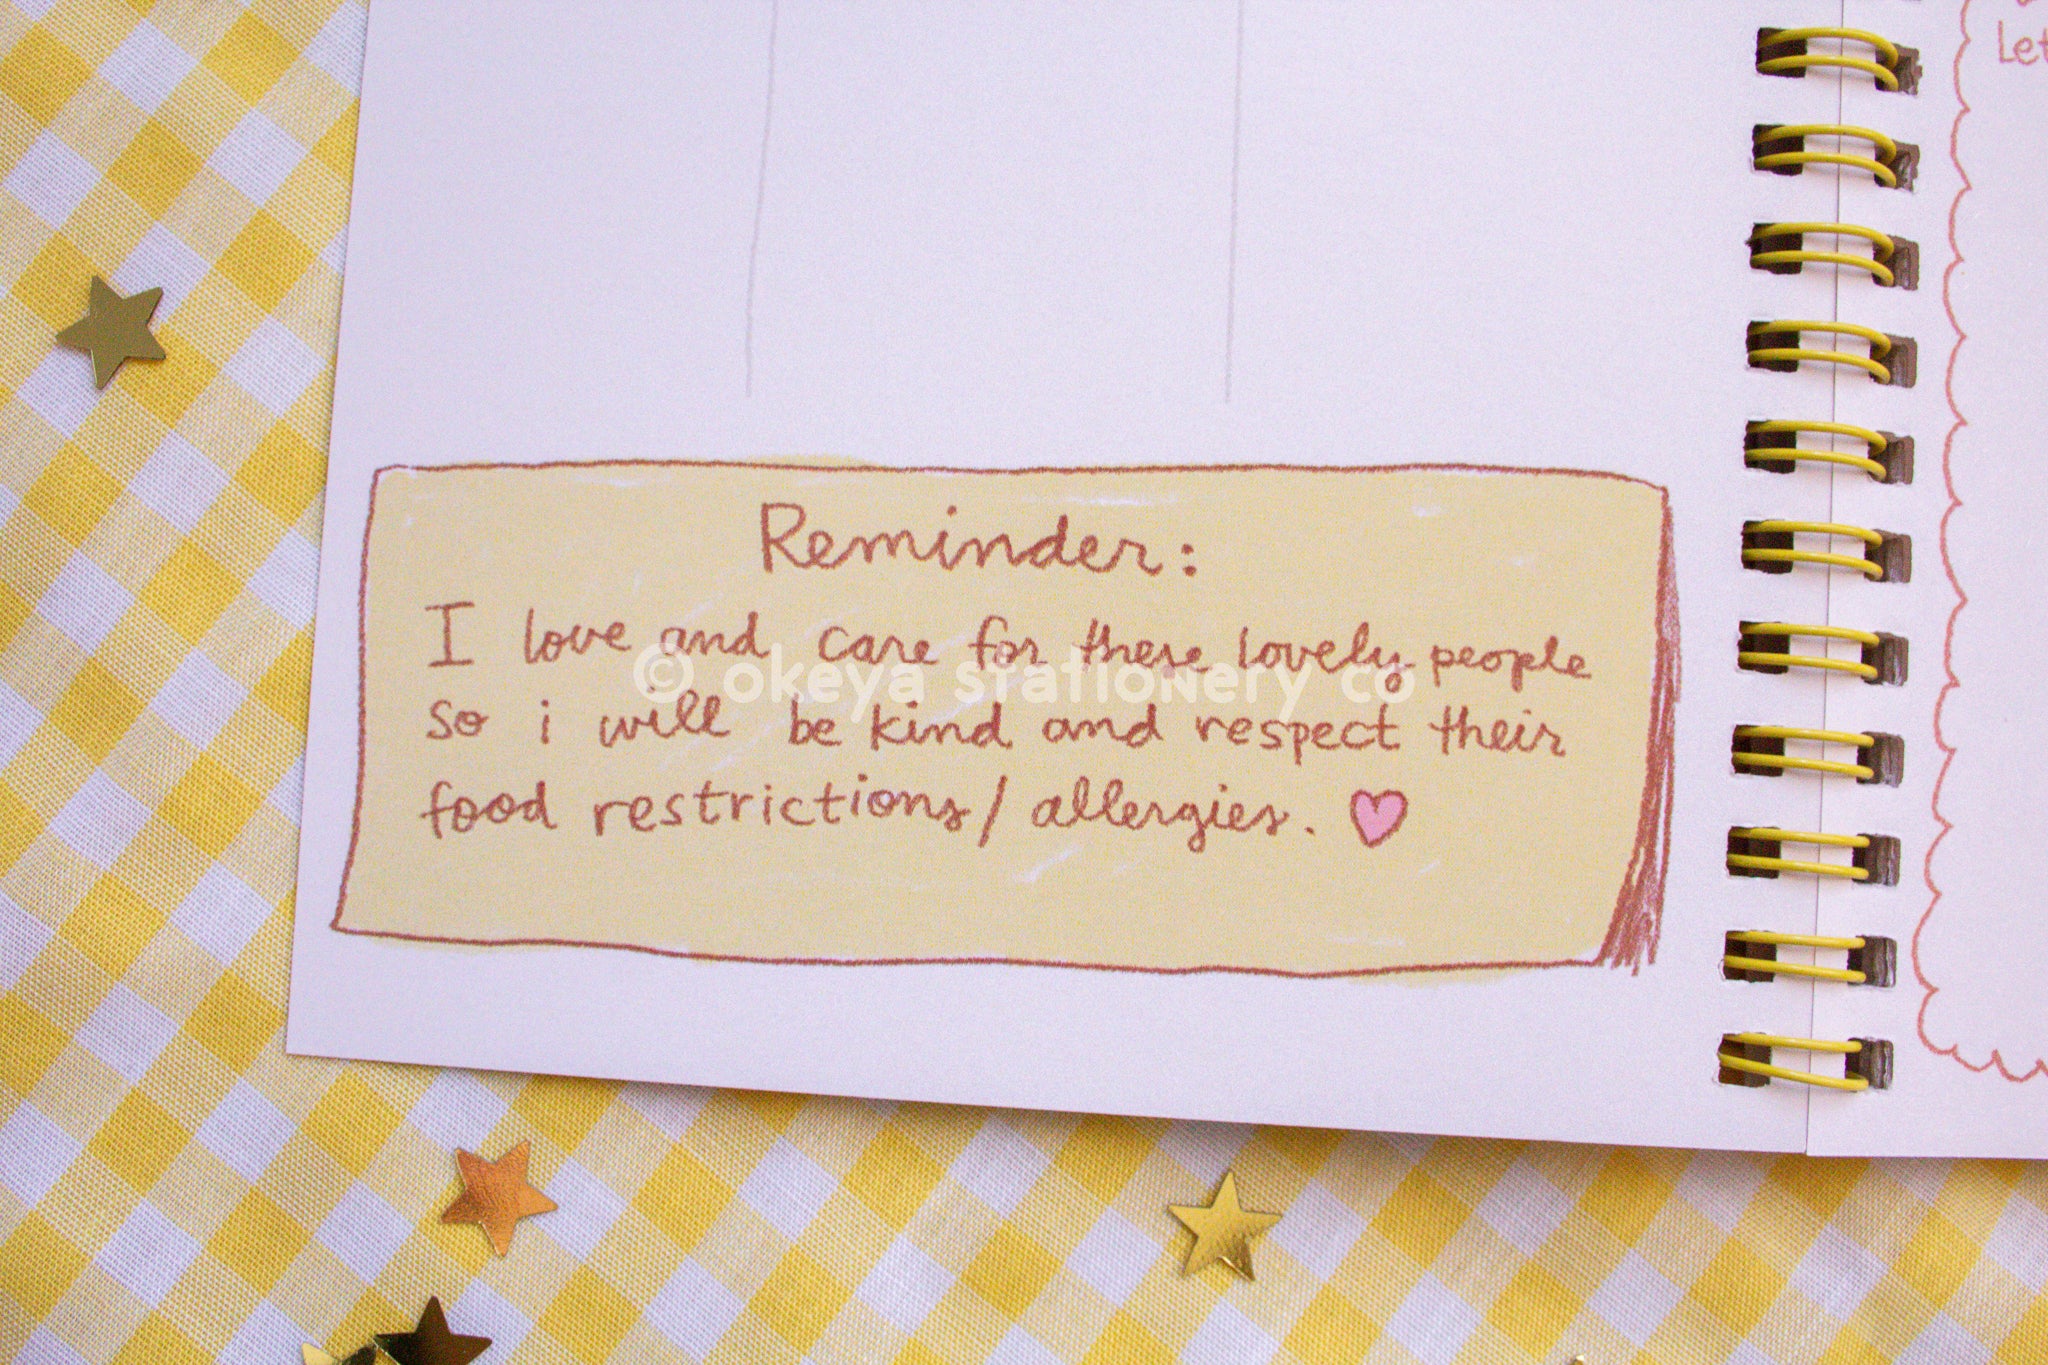 Let
Reminder:
I love and care for these lovely people
so i will be kind and respect their
food restrictions/allergies.
© okeya stationery co